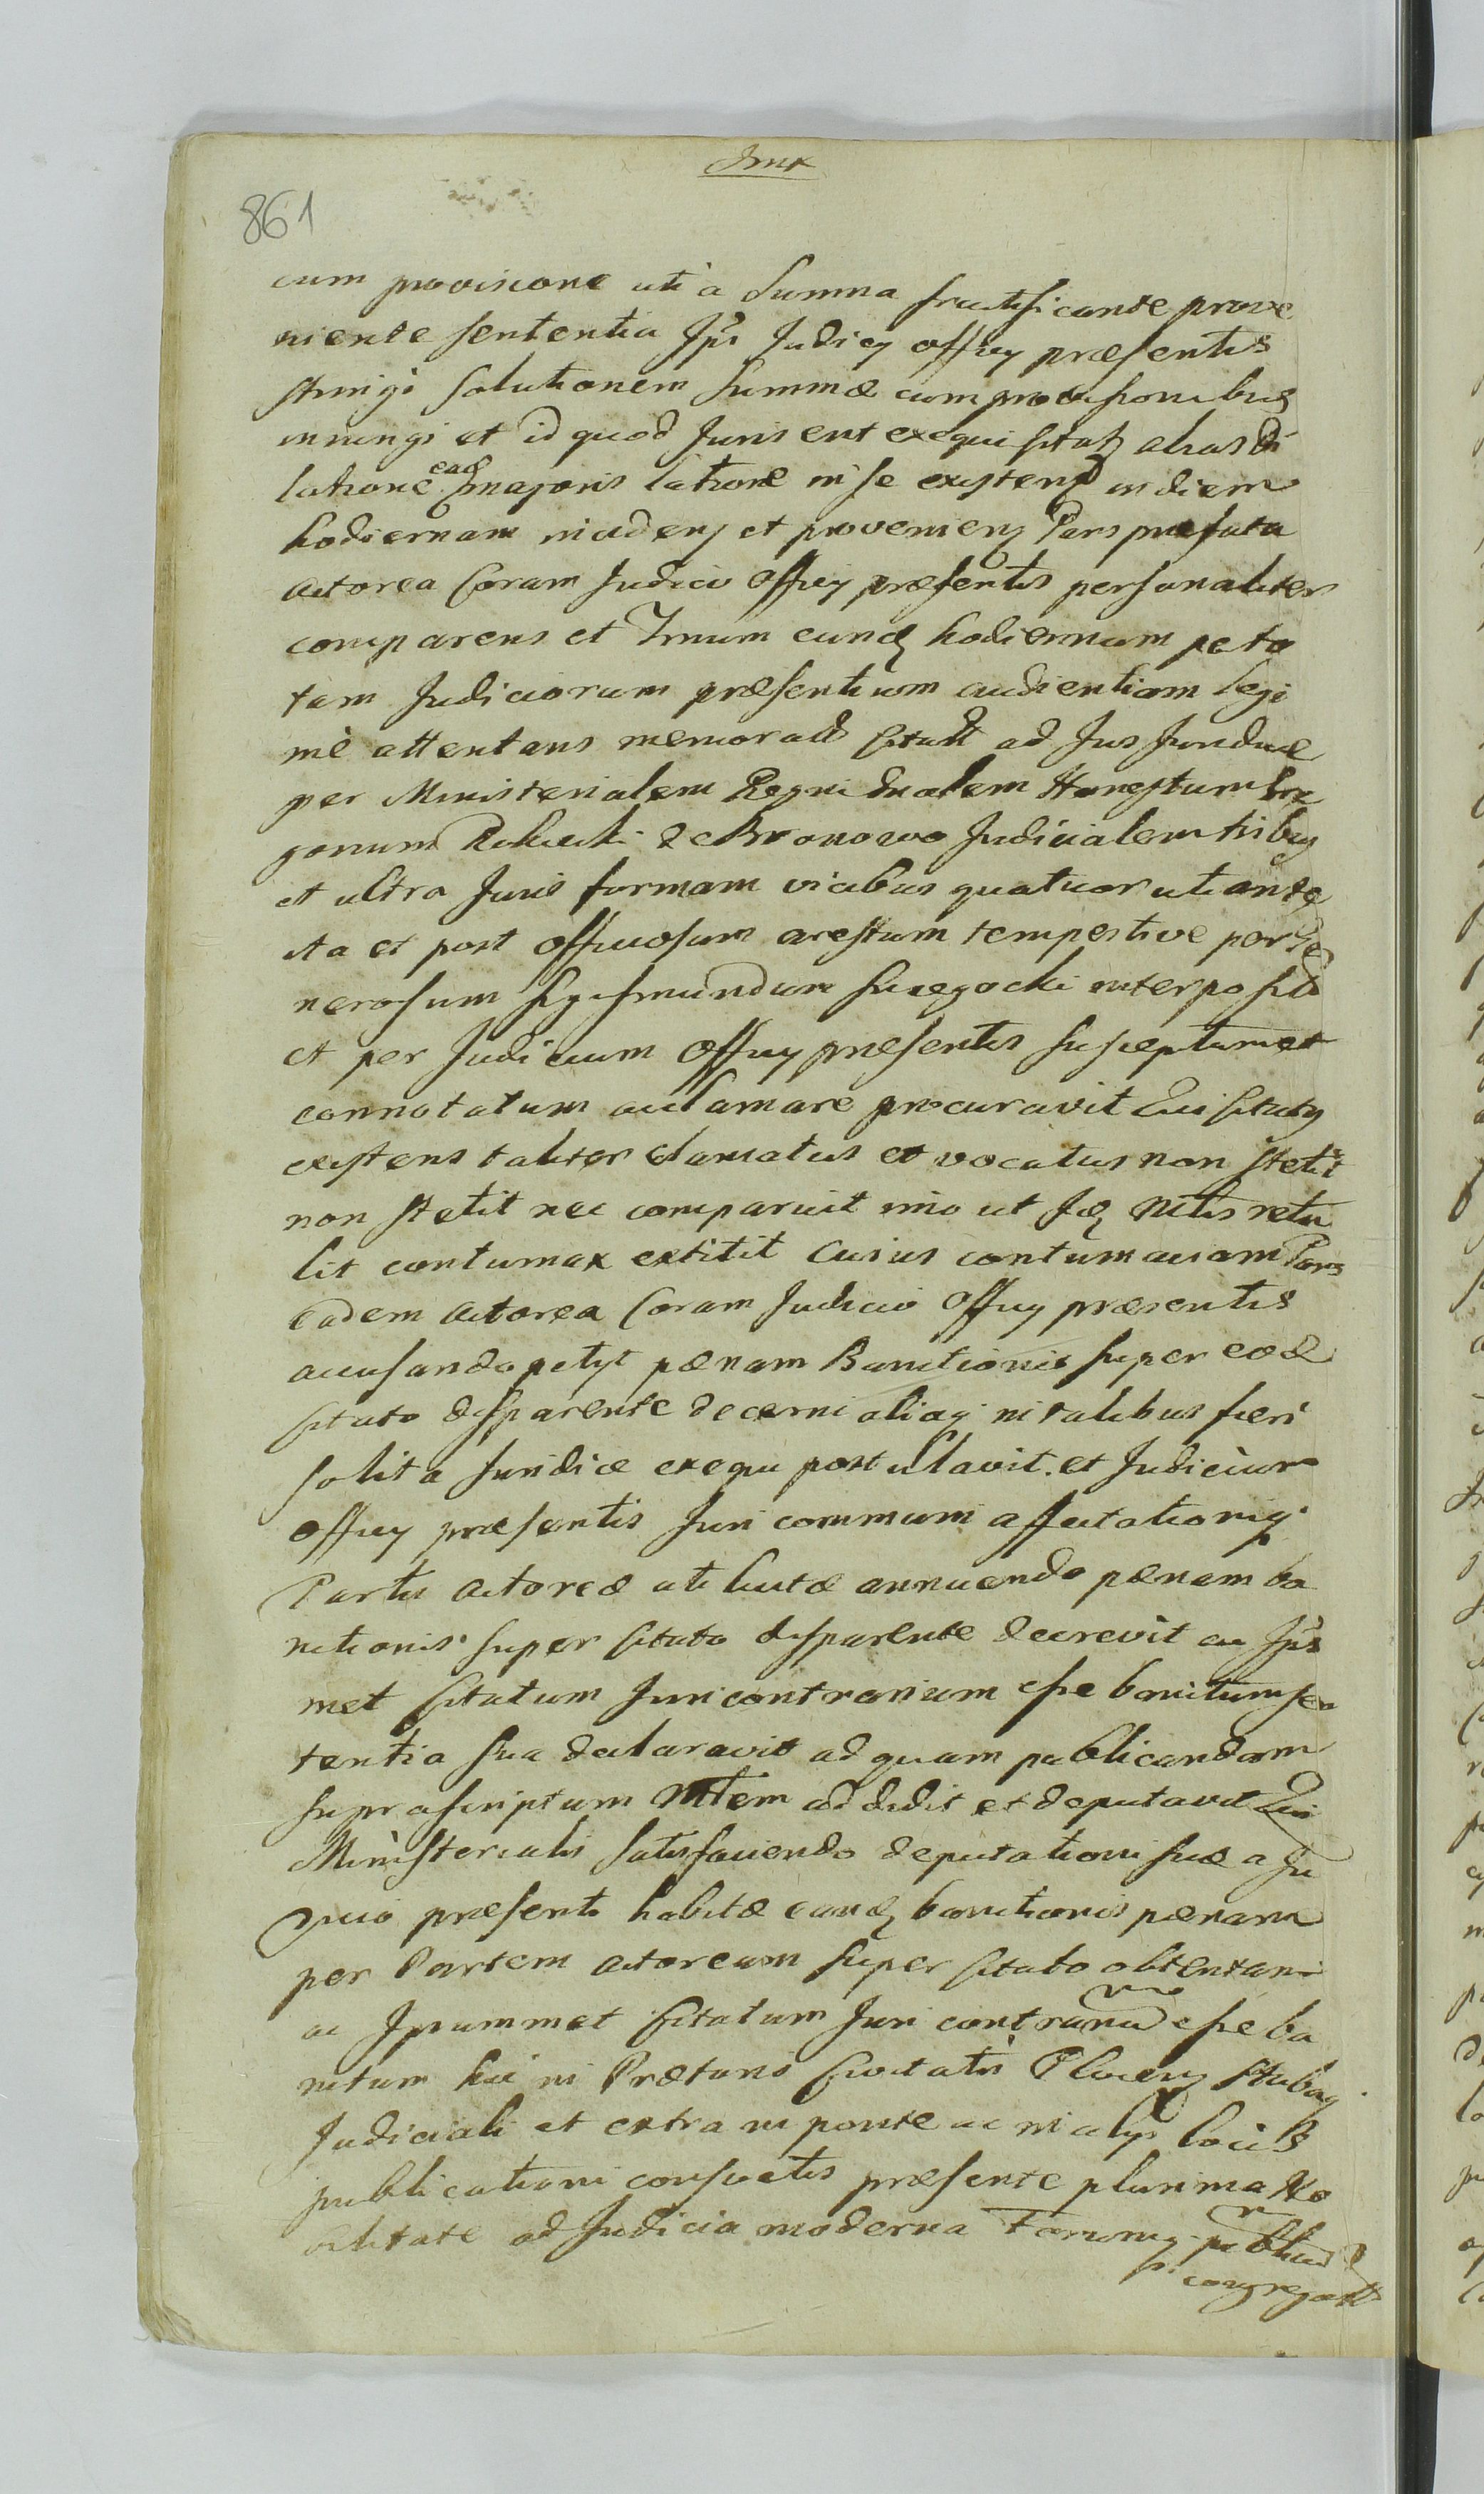 861
cum provisione uti a Summa fructificante prove
niente sententia Jpś Judicij offcij præsentis
stringi solutionem summæ cum provisionibus
iniungi et id quod Juris erit exequi
lationē majoris in se in diem
hodiernam incidens et proveniens Pars præfata
actorea Coram Judicio Offcij præsentis personaliter
comparens et Trnum eundȩ hodiernum peto
tam Judiciorum præsentium audientiam legi
mè attentans memorat Citatū ad Jus Juridice
per Ministerialem Regni Gnalem Honestum Gre
gorium de Bronowo Judicialem tribus
et ultra Juris formam vicibus quatuor uti ante
ita et post officiosum arestum tempestive per Ge
nerosum Sigismundum interposit
et per Judicium Offcij præsentis susceptum et
connotatum acclamare procuravit Qui Citatus
existens taliter clamatus et vocatus non stetit
non stetit nec comparuit imo ut Jdȩ Mtlis retu
lit contumax extitit Cuius contumaciam Pars
eadem actorea Coram Judicio Offcij præsentis
accusando petijt pœnam Banitionis super eodē
citato disparente decerni aliaq; in talibus fieri
solita Juridice exequi postulavit. et Judicium
Offcij præsentis Juri communi affectationiq;
Partis actoreæ uti licitæ annuendo pœnam ba
nitionis super citato disparente decrevit ac Jpś
met Citatum Juri contrarium esse banitum sen
tentia sua declaravit ad quam publicandam
suprascriptum Mtlem addidit et deputavit Qui
Ministerialis satisfaciendo deputationi suæ a Ju
dicio præsenti habitæ eandȩ banitionis pœnam
per Partem actoream super citato obtentam
ac Jpsummet Citatum Juri contrariū esse ba
nitum hic in Prætorio Civitatis Plocens Stubaq;
Judiciali et extra in ponte ac in alijs locis
publicationi consvetis præsente plurima No
bilitate ad Judicia moderna
congregat